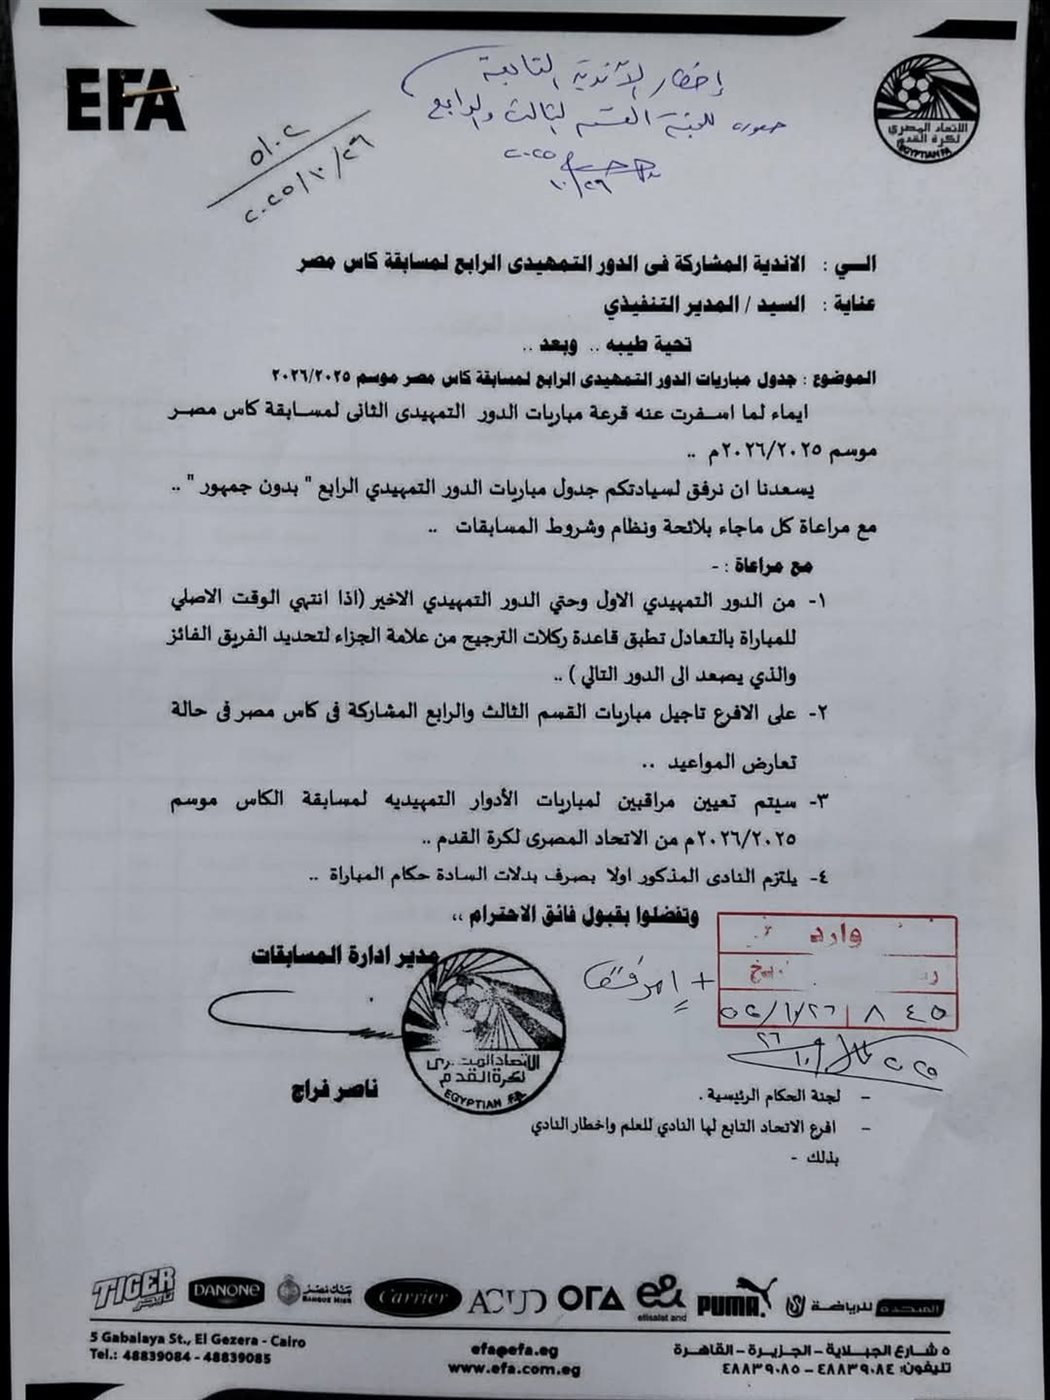 EFA
إخطار الأندية التابعة
صورة للجنة القسم الثالث والرابع
٢٠٢٥
١٠/٢٩
٥١٠٢
٢٠٢٥/١٠/٢٩
الاتحاد المصرى
لكرة القدم
EGYPTIAN FA
الــي : الاندية المشاركة فى الدور التمهيدى الرابع لمسابقة كاس مصر
عناية : السيد / المدير التنفيذي
تحية طيبه .. وبعد ..
الموضوع : جدول مباريات الدور التمهيدى الرابع لمسابقة كاس مصر موسم ٢٠٢٦/٢٠٢٥
ايماء لما اسـفرت عنه قرعة مباريات الدور التمهيدى الثانى لمسـابقة كاس مصـر
موسم ٢٠٢٦/٢٠٢٥م ..
يسعدنا ان نرفق لسيادتكم جدول مباريات الدور التمهيدي الرابع " بدون جمهور " ..
مع مراعاة كل ماجاء بلائحة ونظام وشروط المسابقات ..
مع مراعاة : -
١- من الدور التمهيدي الاول وحتي الدور التمهيدي الاخير (اذا انتهي الوقت الاصلي
للمباراة بالتعادل تطبق قاعدة ركلات الترجيح من علامة الجزاء لتحديد الفريق الفائز
والذي يصعد الى الدور التالي ) ..
٢- على الافرع تاجيل مباريات القسم الثالث والرابع المشاركة فى كاس مصر فى حالة
تعارض المواعيد ..
٣- سيتم تعيين مراقبين لمباريات الأدوار التمهيديه لمسابقة الكاس موسم
٢٠٢٦/٢٠٢٥م من الاتحاد المصرى لكرة القدم ..
٤- يلتزم النادى المذكور اولا بصرف بدلات السادة حكام المباراة ..
وتفضلوا بقبول فائق الاحترام ،،
مدير ادارة المسابقات
وارد
٨٤٥
الاتحاد المصرى
لكرة القدم
EGYPTIAN FA
ناصر فراج
- لجنة الحكام الرئيسية .
- افرع الاتحاد التابع لها النادي للعلم واخطار النادي
بذلك -
TIGER تايجر DANONE بنك مصر BANQUE MISR Carrier ORA e& etisalat and PUMA المتحدة للرياضة
5 Gabalaya St., El Gezera - Cairo
Tel.: 48839084 - 48839085
efa@efa.eg
www.efa.com.eg
٥ شارع الجبلاية - الجزيرة - القاهرة
تليفون: ٤٨٨٣٩٠٨٤ - ٤٨٨٣٩٠٨٥